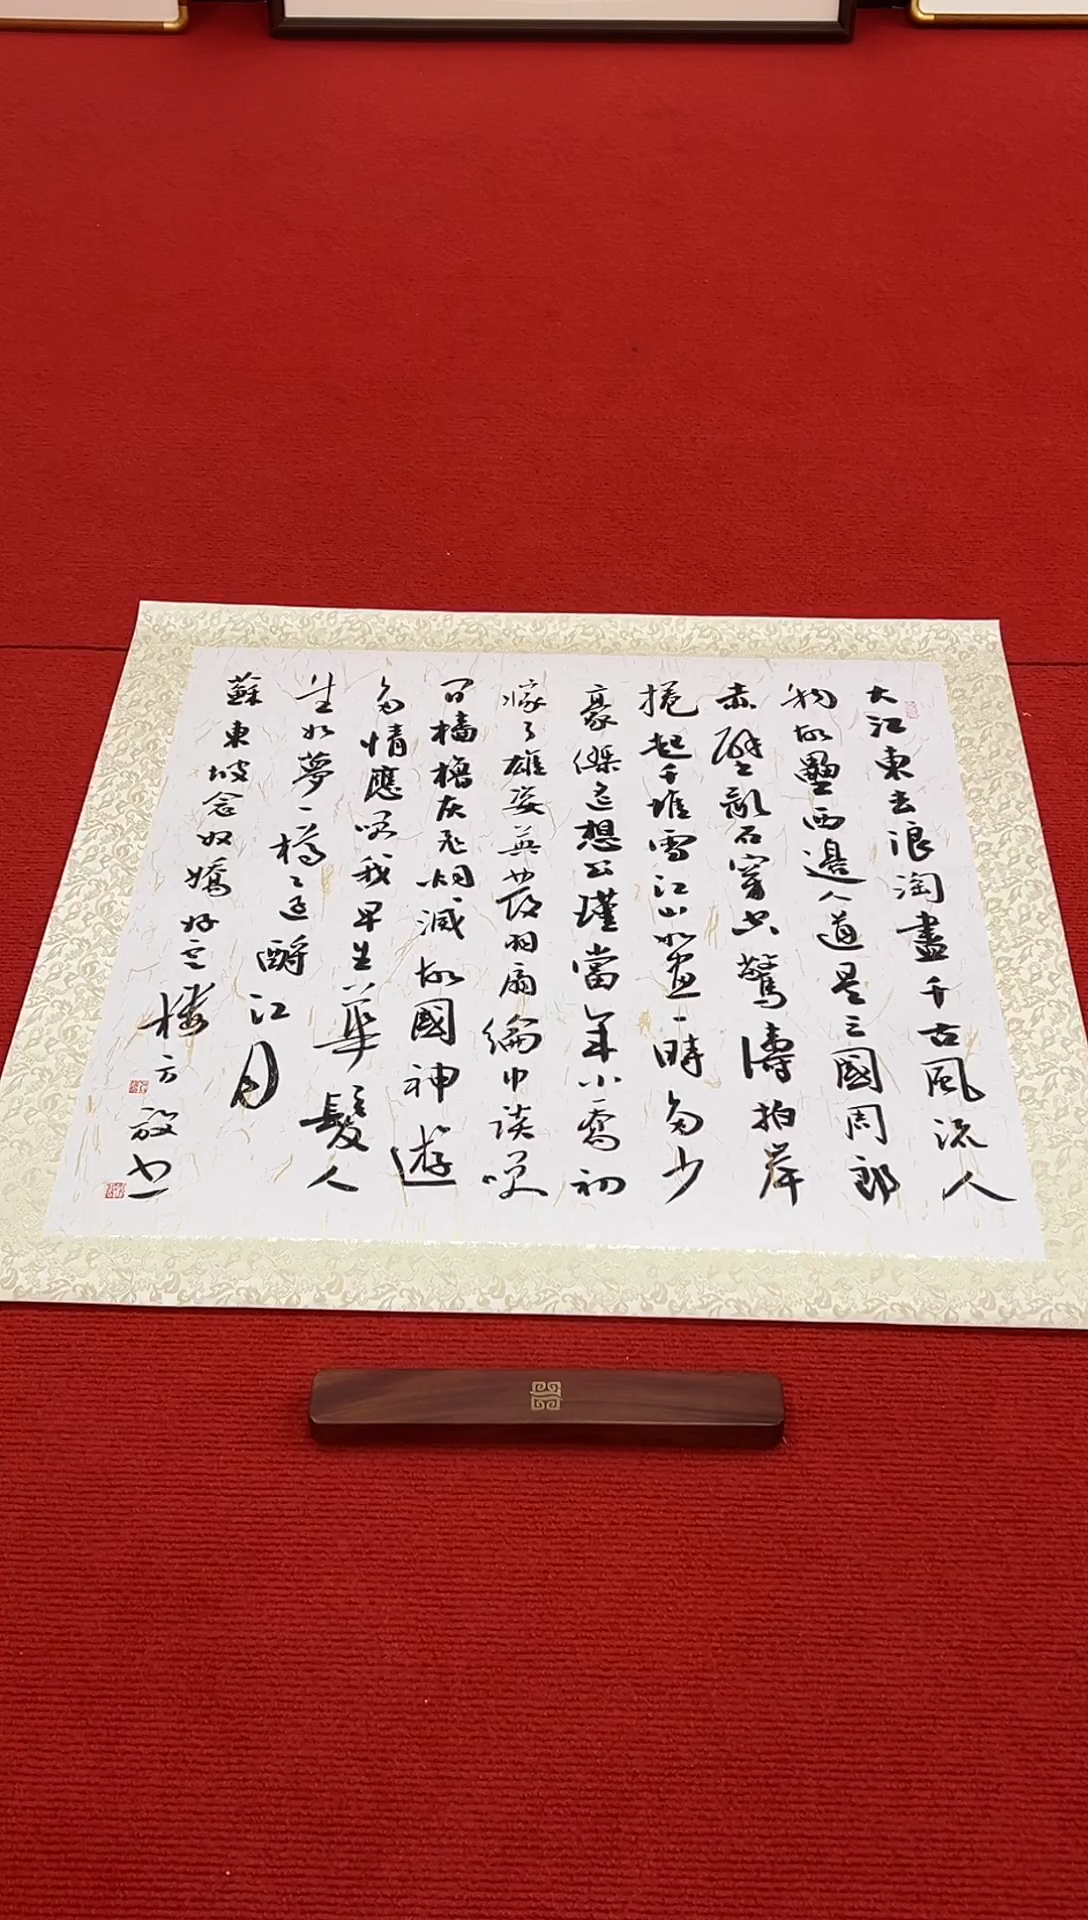 大江東去浪淘盡千古風流人
物故壘西邊人道是三國周郎
赤壁亂石穿空驚濤拍岸
捲起千堆雪江山如畫一時多少
豪傑遙想公瑾當年小喬初
嫁了雄姿英發羽扇綸巾談笑
間檣櫓灰飛烟滅故國神遊
多情應笑我早生華髮人
生如夢一樽還酹江月
蘇東坡念奴嬌好云楼方放书